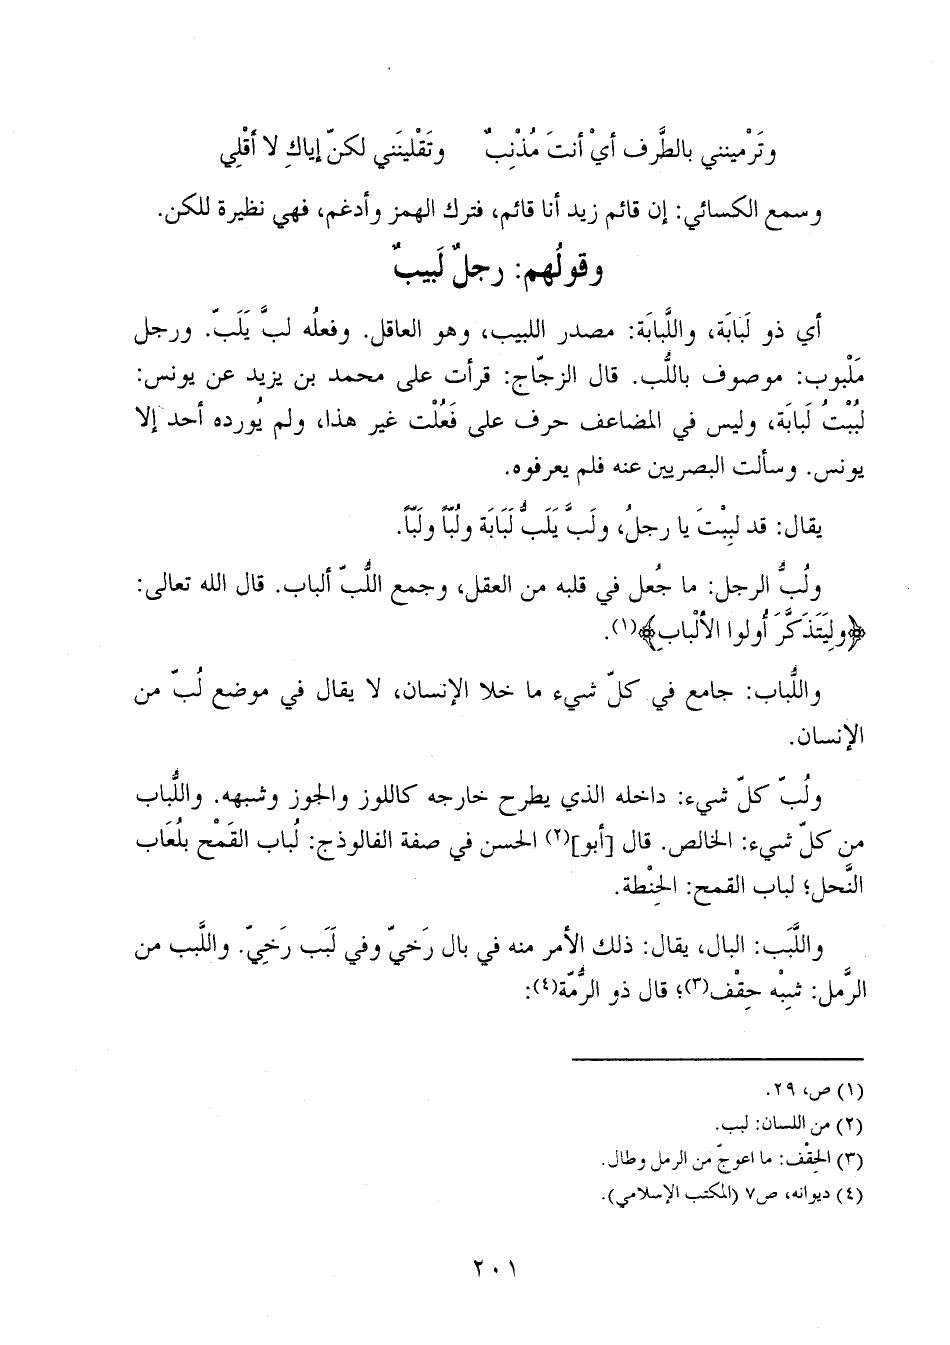 وتَرْمينني بالطَّرف أيْ أنتَ مُذْنِبٌ وتَقْلينَني لكنّ إياكِ لا أَقْلِي
وسمع الكسائي: إن قائم زيد أنا قائم، فترك الهمز وأدغم، فهي نظيرة للكن.
وقولُهم: رجلٌ لَبيبٌ
أي ذو لَبابَة، واللَّبابَة: مصدر اللبيب، وهو العاقل. وفعلُه لبَّ يَلَبّ. ورجل
مَلْبوب: موصوف باللُّب. قال الزجّاج: قرأت على محمد بن يزيد عن يونس:
لبُبْتُ لَبابَة، وليس في المضاعف حرف على فَعُلْت غير هذا، ولم يُورده أحد إلا
يونس. وسألت البصريين عنه فلم يعرفوه.
يقال: قد لبِبْتَ يا رجلُ، ولَبَّ يَلَبُّ لَبَابَة ولُبّاً ولَبّاً.
ولُبُّ الرجل: ما جُعل في قلبه من العقل، وجمع اللُّبّ ألباب. قال الله تعالى:
﴿ولِيَتَذَكَّرَ أُولوا الألْبابِ﴾(١).
واللُّباب: جامع في كلّ شيء ما خلا الإنسان، لا يقال في موضع لُبّ من
الإنسان.
ولُبّ كلّ شيء: داخله الذي يطرح خارجه كاللوز والجوز وشبهه. واللُّباب
من كلّ شيء: الخالص. قال [أبو](٢) الحسن في صفة الفالوذج: لُباب القَمْح بلُعَاب
النَّحل؛ لباب القمح: الحِنْطة.
واللَّبَب: البال، يقال: ذلك الأمر منه في بال رَخيّ وفي لَبَب رَخِيّ. واللَّبب من
الرَّمل: شِبْه حِقْف(٣)؛ قال ذو الرُّمّة(٤):
(١) ص، ٢٩.
(٢) من اللسان: لبب.
(٣) الحِقْف: ما اعوجّ من الرمل وطال.
(٤) ديوانه، ص٧ (المكتب الإسلامي).
٢٠١